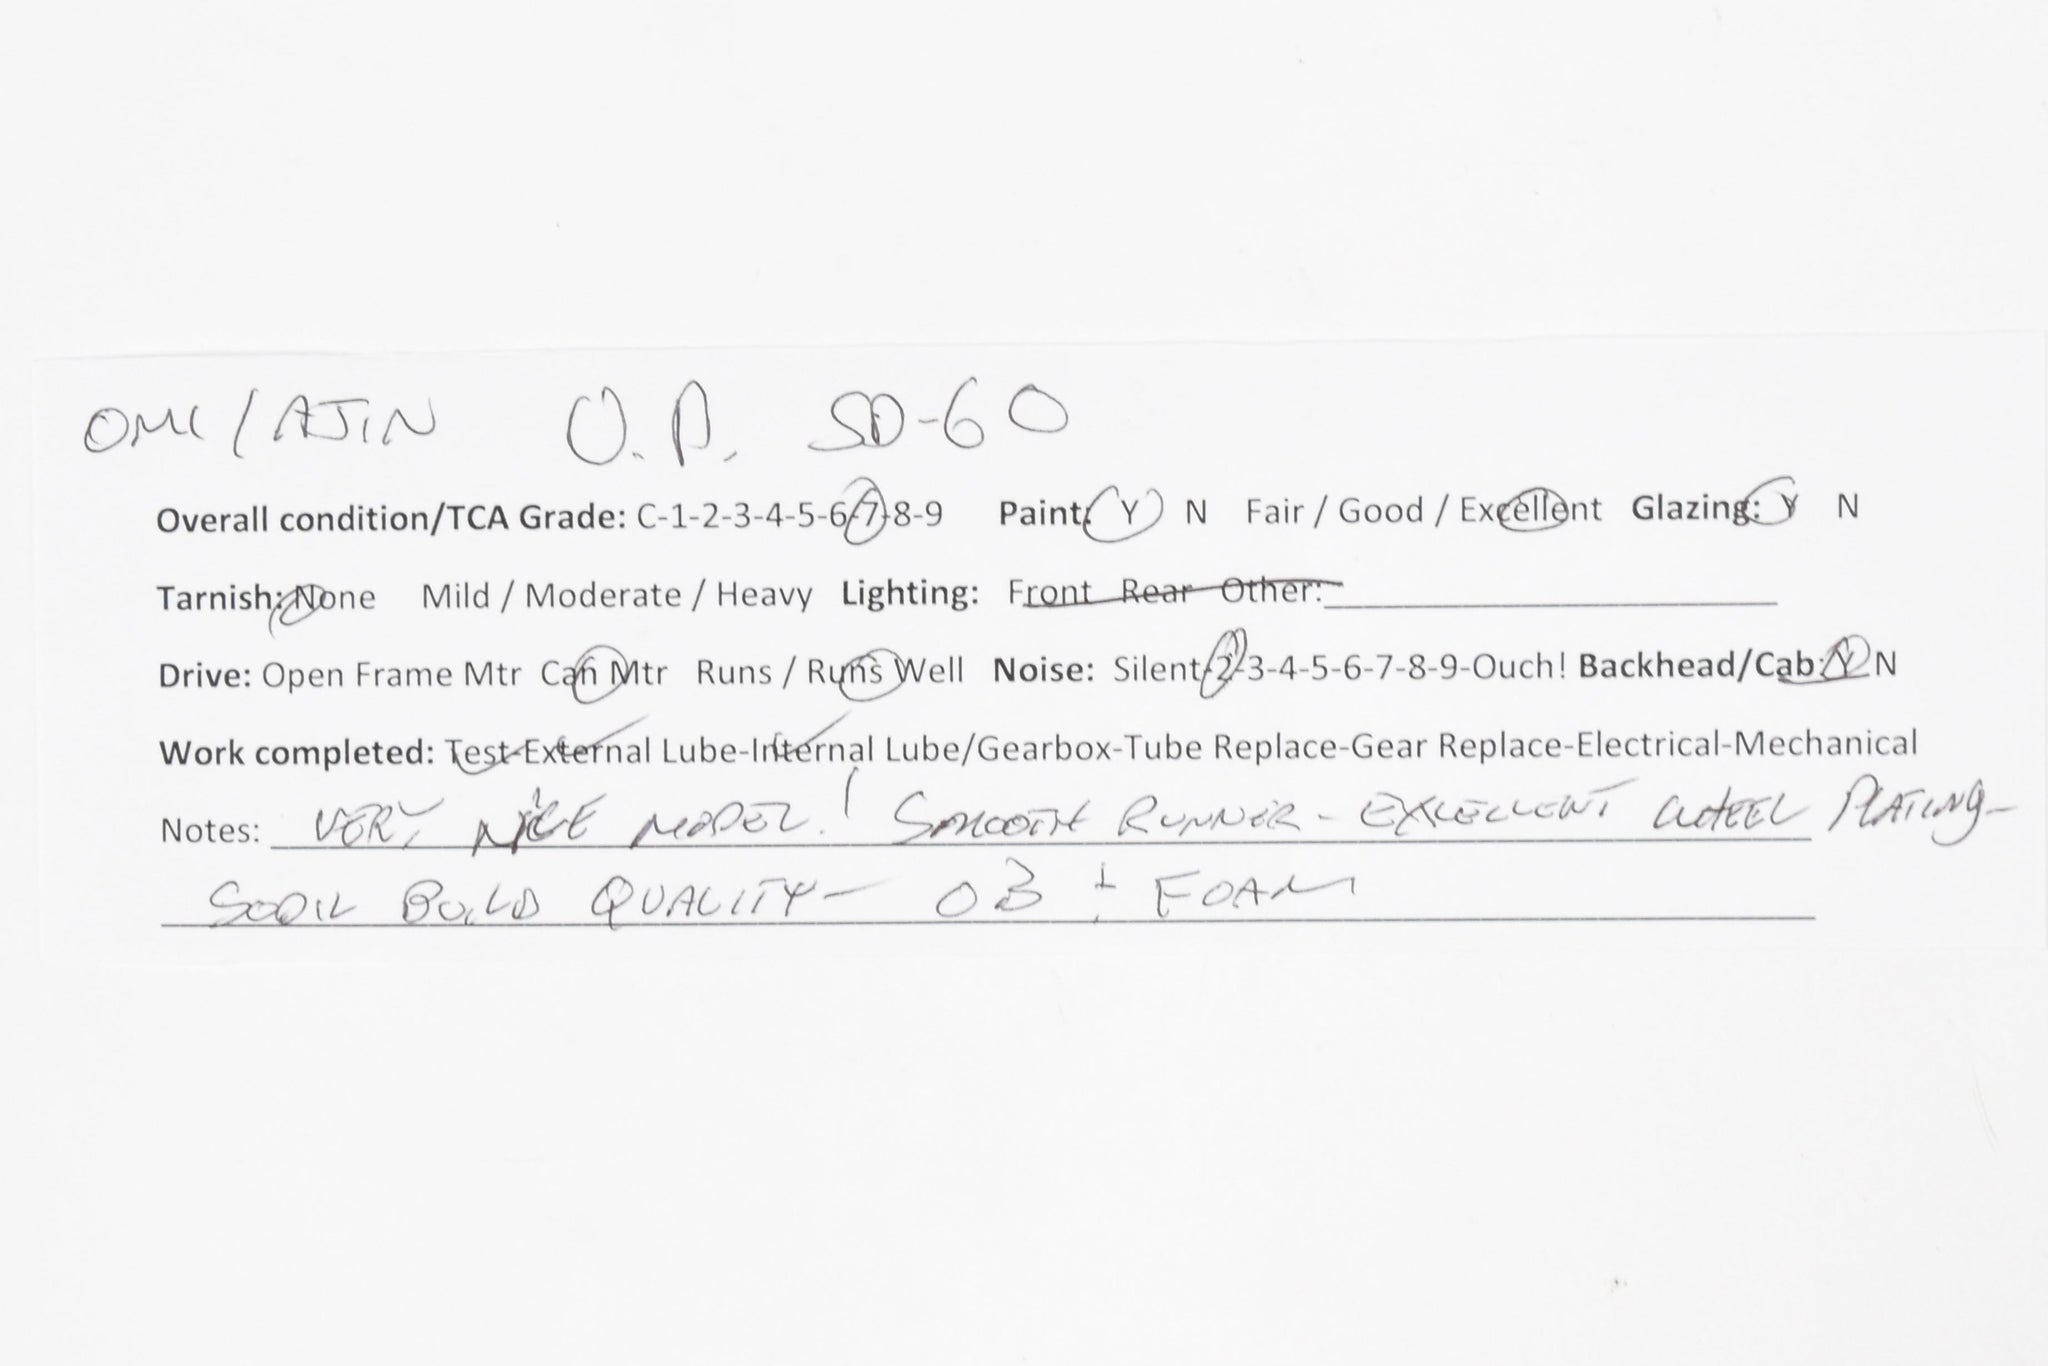 OMI/AJIN U.P. SD-60
Overall condition/TCA Grade: C-1-2-3-4-5-6-7-8-9 Paint: Y N Fair / Good / Excellent Glazing: Y N
Tarnish: None Mild / Moderate / Heavy Lighting: Front Rear Other:
Drive: Open Frame Mtr Can Mtr Runs / Runs Well Noise: Silent-2-3-4-5-6-7-8-9-Ouch! Backhead/Cab: Y N
Work completed: Test-External Lube-Internal Lube/Gearbox-Tube Replace-Gear Replace-Electrical-Mechanical
Notes: VERY NICE MODEL! SMOOTH RUNNER - EXCELLENT WHEEL PLATING -
BUILD QUALITY - OB + FOAM